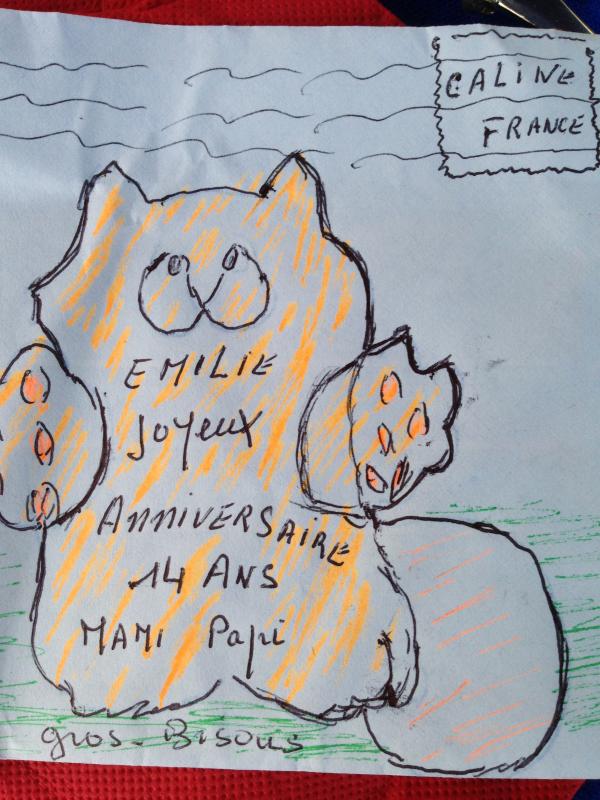 CALINE
FRANCE
EMILIE
Joyeux
ANNIVERSAIRE
14 ANS
MAMI Papi
gros-Bisous